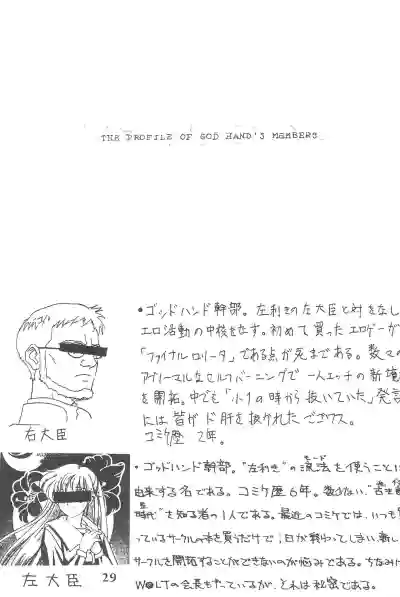 THE PROFILE OF GOD HAND'S MEMBERS
•ゴッドハンド幹部。左利きの左大臣と対をなし
エロ活動の中核をなす。初めて買ったエロゲーが
「ファイナルロリータ」である点が死まである。数々の
アブノーマルなセルフバーニングで一人エッチの新境
を開拓。中でも「小1の時から抜いていた」発言
には皆がド肝を抜かれた
コミケ歴 2年。
右大臣
•ゴッドハンド幹部。"左利き"の魔法を使うことに
モード
由来する名である。コミケ歴6年。数少ない
時代"を知る者の1人である。最近のコミケでは、いつも買
っているサークルの本を買うだけで1日が終わってしまい、新し
サークルを開拓することができないのが悩みである。ちなみに
W●LTの会長もやっているが、それは秘密である。
左大臣
29